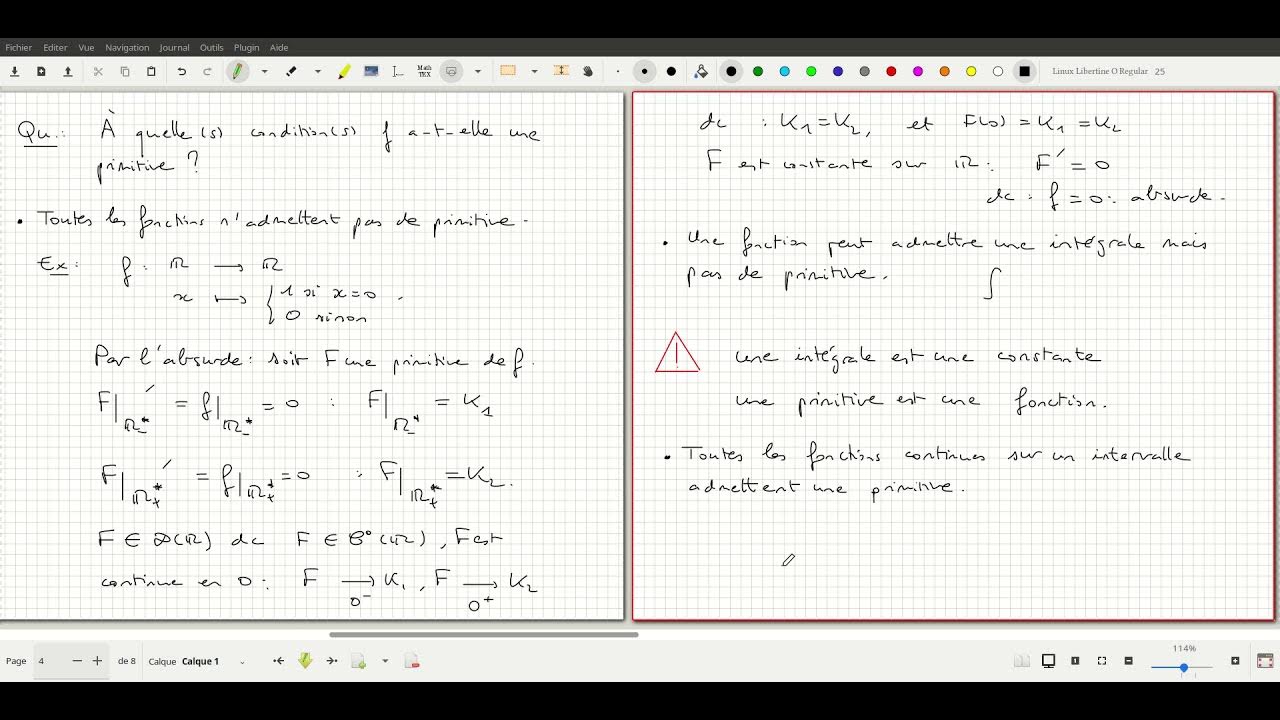 Fichier Editer Vue Navigation Journal Outils Plugin Aide
Math TEX
Linux Libertine O Regular 25
Qu.: À quelle(s) condition(s) f a-t-elle une
primitive ?
• Toutes les fonctions n'admettent pas de primitive.
Ex : f : ℝ ⟶ ℝ
x ⟼ { 1 si x=0
0 sinon
.
Par l'absurde : soit F une primitive de f.
F|ℝ₋*′ = f|ℝ₋* = 0 : F|ℝ₋* = K₁
F|ℝ₊*′ = f|ℝ₊* = 0 : F|ℝ₊* = K₂.
F ∈ D(ℝ) dc F ∈ C⁰(ℝ), F est
continue en 0 : F ⟶ K₁, F ⟶ K₂
0⁻ 0⁺
dc : K₁ = K₂, et F(0) = K₁ = K₂
F est constante sur ℝ : F′ = 0
dc : f = 0 : absurde.
• Une fonction peut admettre une intégrale mais
pas de primitive. ∫
! une intégrale est une constante
une primitive est une fonction.
• Toutes les fonctions continues sur un intervalle
admettent une primitive.
Page 4 de 8 Calque Calque 1
114%